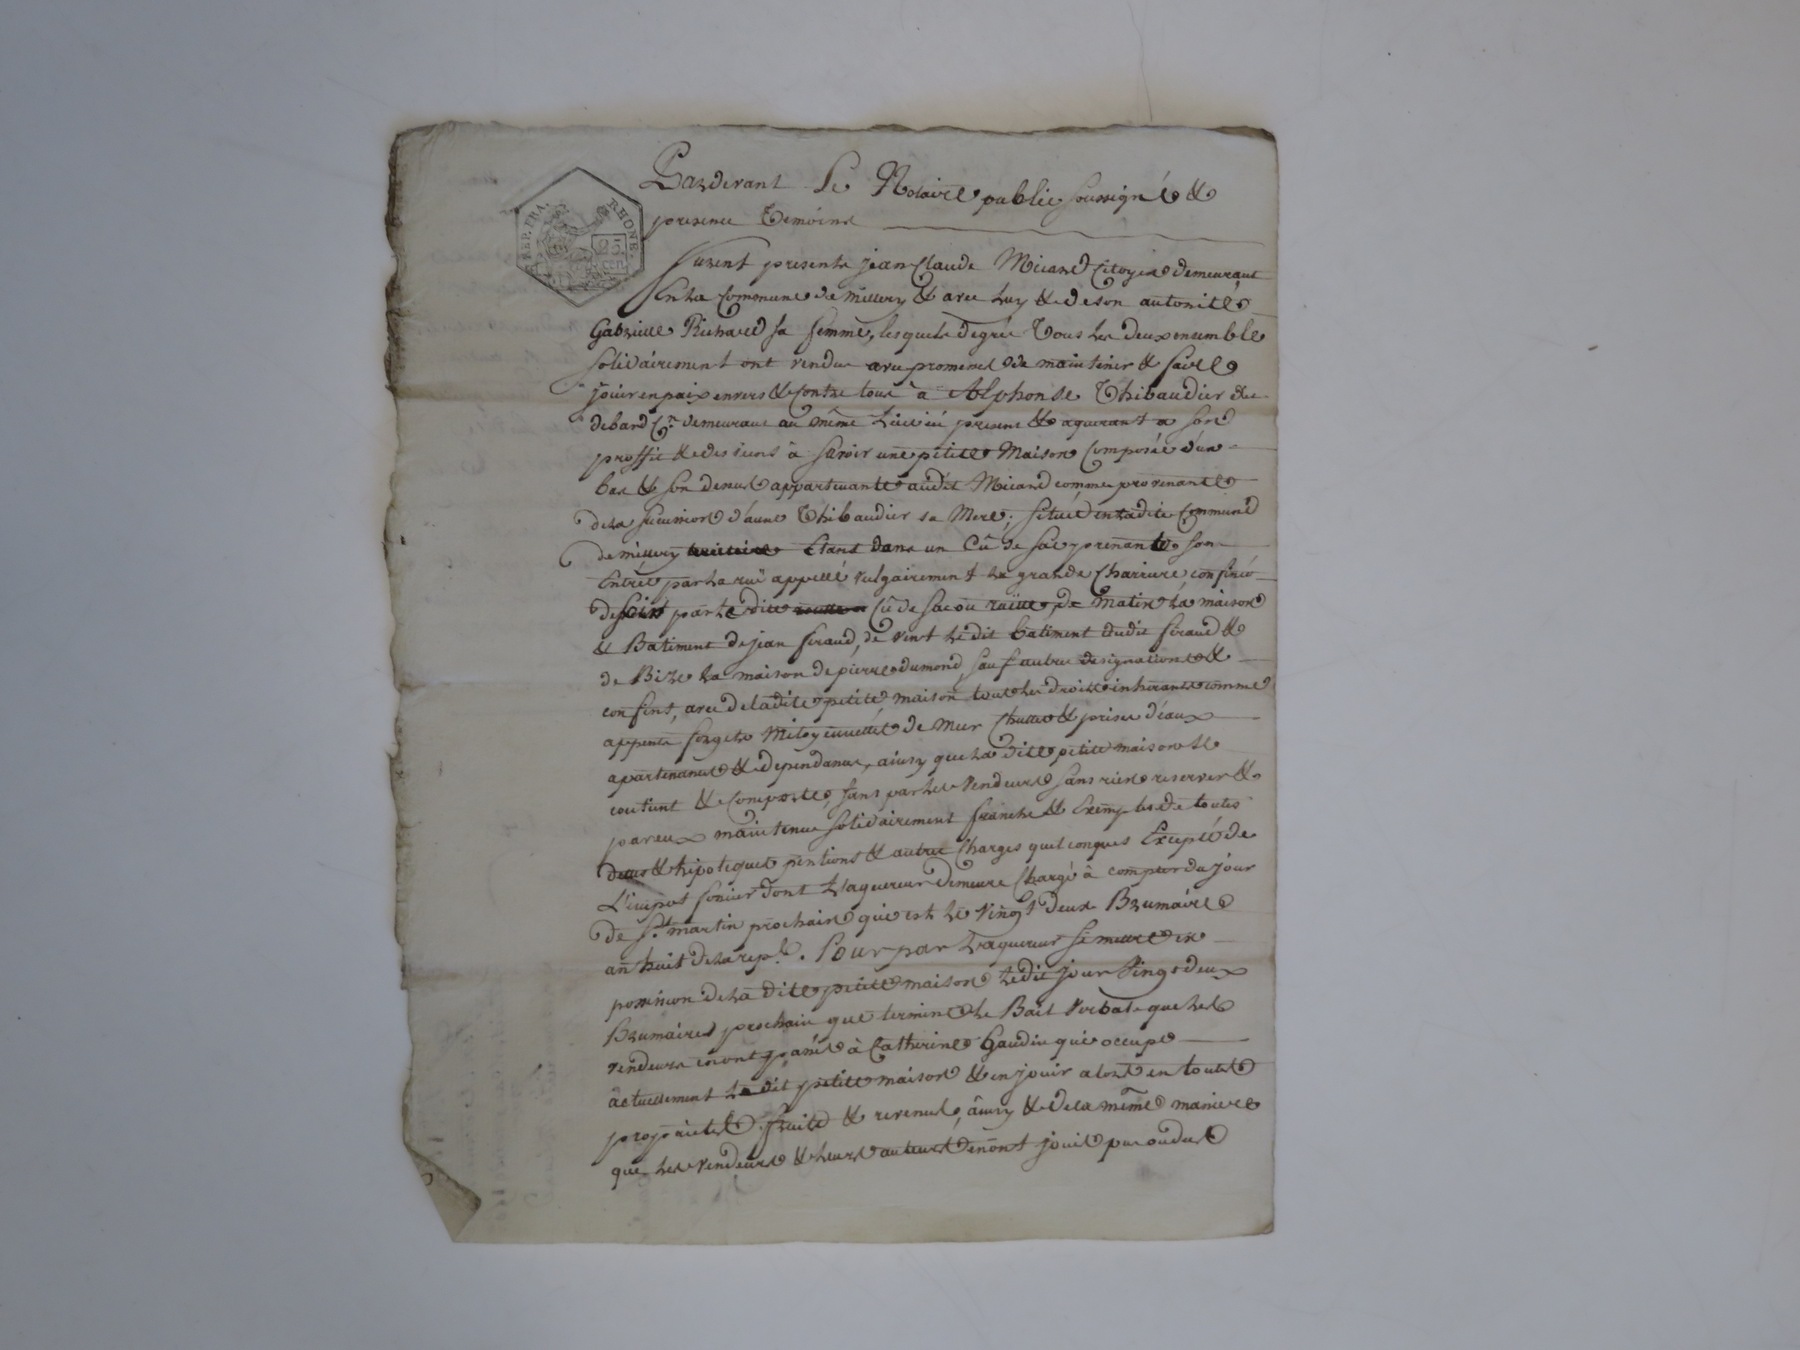 REP. FRA. RHONE
25 cen
Pardevant Le Notaire public soussigné &
presence Temoins
furent presents jean Claude Micard Citoyen demeurant
En la Commune de millery & avec Luy & de son autorité
Gabrielle Richard sa femme, lesquels degrée Tous les deux ensemble
solidairement ont vendu avec promesse de maintenir & faire
jouir en paix envers & contre tous à Alphonse Thibaudier du
debard Cn. demeurant au même Lieu ici present & aquerant a son
proffit & des siens à savoir une petite Maison Composée d'un
bas & son dessus appartenante audit Micard comme provenante
de la succession d'anne Thibaudier sa Mere, située en ladite Commune
de millery Etant dans un Cû de sac prenante son
Entrée par la ruë appellé vulgairement la grande Charriere confinée
de soir par le dit Cû de sac ou ruëtte, de matin la maison
& Batiment de jean feraud, de vent le dit batiment dudit feraud &
de Bize la maison de pierre dumond, sauf autre designations &
confins, avec de ladite petite maison tous les droits inherants comme
appents forgets Mitoyennettés de Mur Chuttes & prises d'eaux
apartenances & dependances, ainsy que la dite petite maison se
contient & comporte, sans par les vendeurs sans rien reserver &
par eux maintenue solidairement franche & Exempte de toutes
dettes & hipoteques pentions & autres Charges quelconques Excepté de
L'impot foncier dont L'aquereur demeure Chargé à compter du jour
de St. martin prochain qui est le vingt deux Brumaire
an huit de la rep.e. Pour par L'aquereur se mettre en
possession de la dite petite maison Ledit jour Vingt deux
Brumaire prochain que termine le Bail Verbale que les
vendeurs en ont passé à Catherine Gaudin qui occupe
actuellement la dit petite maison & en jouir alors en toutes
proprietés fruits & revenus, ainsy & de la même maniere
que les vendeurs & leurs auteurs en ont jouis pu ou dus